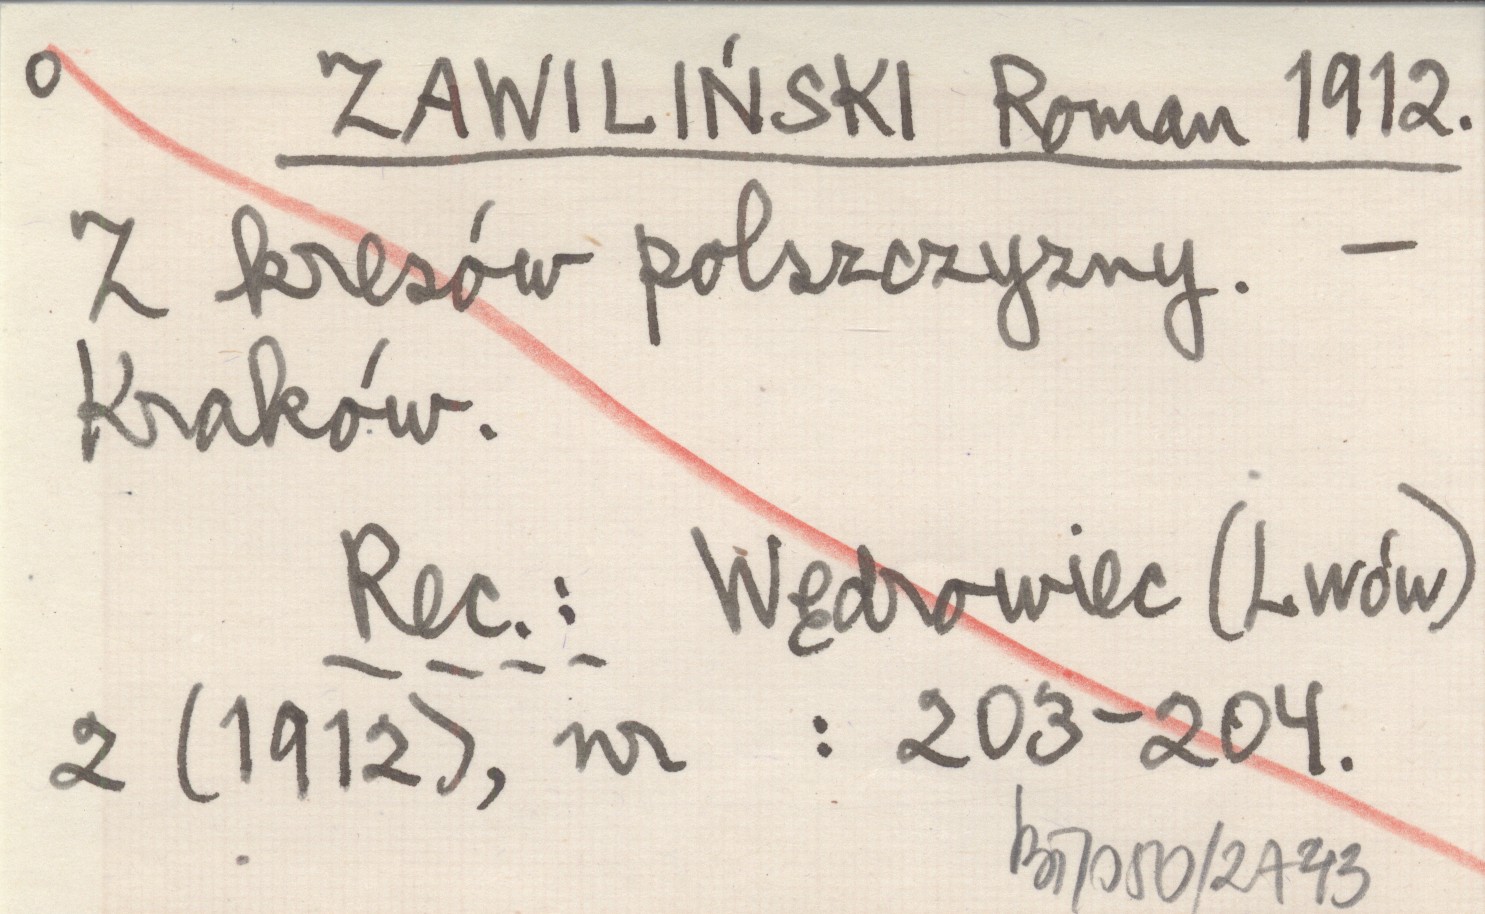 o ZAWILIŃSKI Roman 1912.
Z kresów polszczyzny. —
Kraków.
Rec.: Wędrowiec (Lwów)
2 (1912), nr : 203-204.